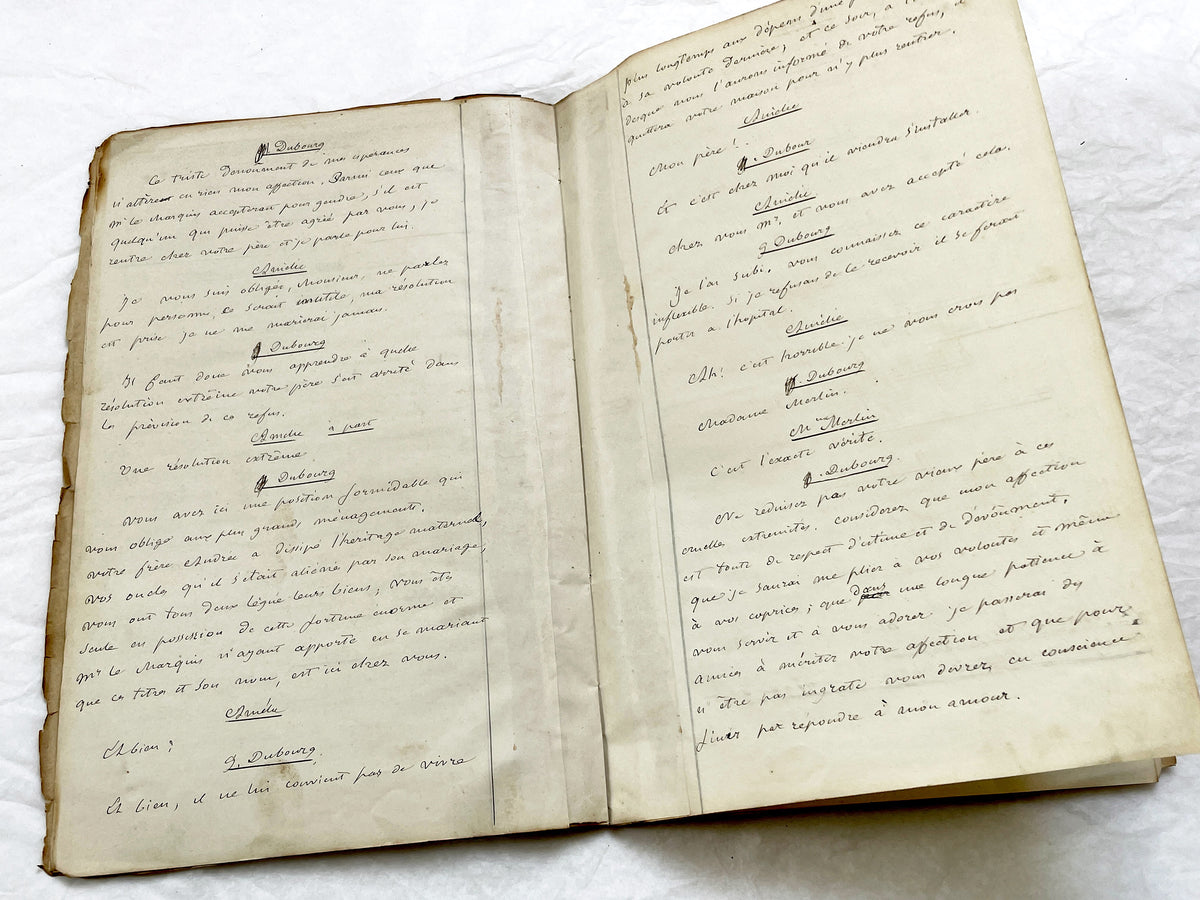 Dubourg
Ce triste Denoument de mes espérances
n'altèrent en rien mon affection. Parmi ceux que
Mr le Marquis accepterait pour gendre, s'il est
quelqu'un qui puisse être agréé par vous, je
rentre chez votre père et je parle pour lui.
Amélie
Je vous suis obligée, Monsieur, ne parlez
pour personne, ce serait inutile, ma résolution
est prise je ne me marierai jamais.
Dubourg
Il faut donc vous apprendre à quelle
résolution extrême votre père s'est arrêté dans
la prévision de ce refus.
Amélie à part
Une résolution extrême.
Dubourg
Vous avez ici une position formidable qui
vous oblige aux plus grands ménagements.
Votre frère Andrée a dissipé l'heritage maternel,
vos oncles qu'il s'était aliénés par son mariage,
vous ont tous deux légué leurs biens, vous êtes
seule en possession de cette fortune enorme et
Mr le Marquis n'ayant apporté en se mariant
que ces titres et son nom, est ici chez vous.
Amélie
Et bien ?
G. Dubourg.
Et bien, il ne lui convient pas de vivre
plus longtemps aux dépens d'une
à sa volonté dernière, et ce soir, à
desque nous l'aurons informé de votre refus, il
quittera votre maison pour n'y plus rentrer.
Amélie
Mon père !..
. Dubour
Et c'est chez moi qu'il viendra s'installer.
Amélie
Chez vous Mr. et vous avez accepté cela.
G Dubourg
Je l'ai subi, vous connaissez ce caractère
inflexible. Si je refusais de le recevoir il se ferait
porter à l'hopital.
Amélie
Ah! c'est horrible. je ne vous crois pas
. Dubourg
Madame Merlin.
Mme Merlin
C'est l'exacte vérité.
. Dubourg.
Ne reduisez pas votre vieux père à ces
cruelles extremités. considerez que mon affection
est toute de respect d'estime et de dévoûment,
que je saurai me plier à vos volontés et même
à vos caprices ; que dans une longue patience à
vous servir et à vous adorer je passerai des
années à mériter votre affection et que pour
n'être pas ingrate vous devrez en conscience
finir par répondre à mon amour.